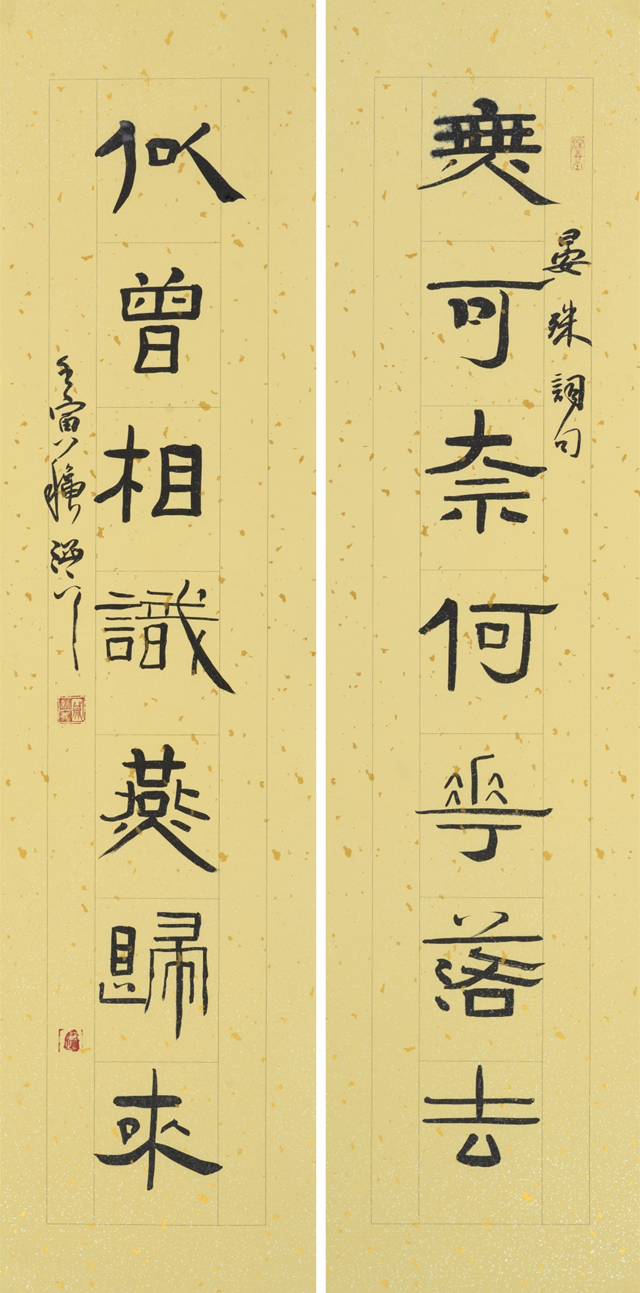 晏殊詞句
無可奈何華落去
似曾相識燕歸來
壬寅